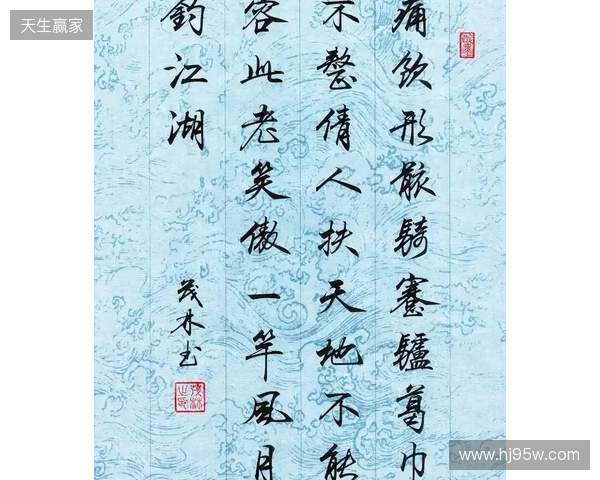 天生赢家
痛飲形骸騎蹇驢葛巾
不整倩人扶天地不能
容此老笑傲一竿風月
釣江湖
茂林书
www.hj95w.com